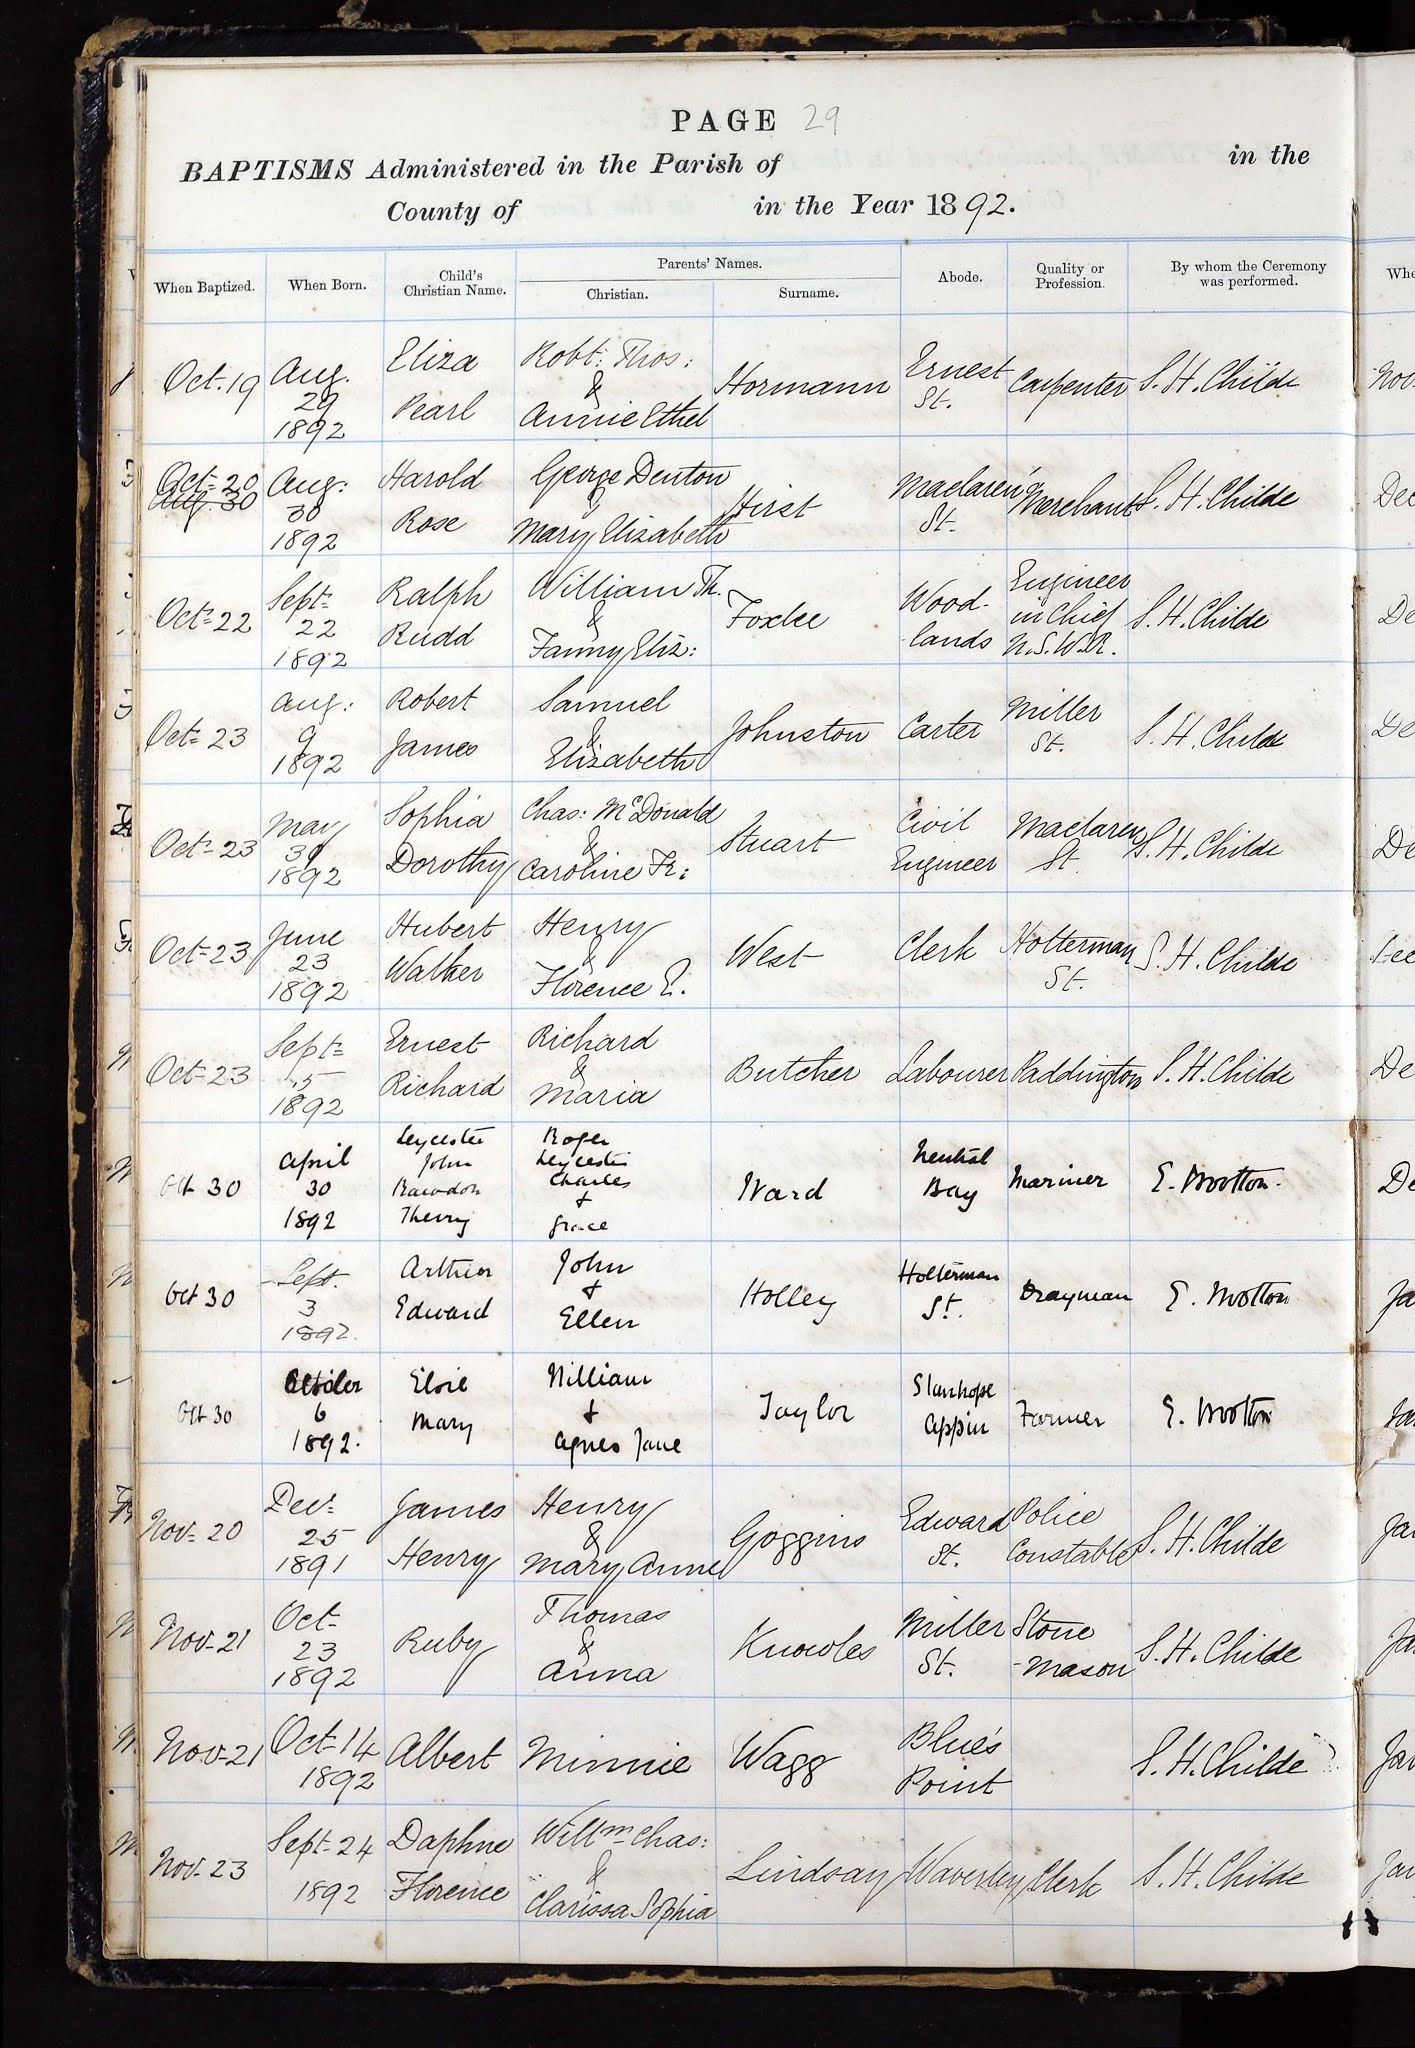 PAGE 29
BAPTISMS Administered in the Parish of in the
County of in the Year 1892.
When Baptized. When Born. Child's Christian Name. Parents' Names. Christian. Surname. Abode. Quality or Profession. By whom the Ceremony was performed.
Oct. 19 Aug. 29 1892 Eliza Pearl Robt: Thos: & Annie Ethel Hormann Ernest St. Carpenter S. H. Childe
Oct= 20 Aug. 30 Aug: 30 1892 Harold Rose George Denton & Mary Elizabeth Hirst Maclaren St. Merchant S. H. Childe
Oct= 22 Sept= 22 1892 Ralph Rudd William Th. & Fanny Eliz: Foxlee Wood-lands Engineer in Chief N.S.W.R. S. H. Childe
Oct= 23 Aug: 9 1892 Robert James Samuel & Elizabeth Johnston Carter Miller St. S. H. Childe
Oct= 23 May 30 1892 Sophia Dorothy Chas: McDonald & Caroline Fr: Stuart Civil Engineer Maclaren St. S. H. Childe
Oct= 23 June 23 1892 Hubert Walker Henry & Florence E. West Clerk Holterman St. S. H. Childe
Oct= 23 Sept= 15 1892 Ernest Richard Richard & Maria Butcher Labourer Paddington S. H. Childe
Oct 30 April 30 1892 Leycester John Rawdon Therry Roger Leycester Charles + Grace Ward Neutral Bay Mariner E. Wootton.
Oct 30 Sept. 3 1892. Arthur Edward John + Ellen Holley Holterman St. Drayman E. Wootton
Oct 30 October 6 1892. Elsie Mary William + Agnes Jane Taylor Stanhope Appin Farmer E. Wootton
Nov= 20 Dec= 25 1891 James Henry Henry & Mary Anne Goggins Edward St. Police Constable S. H. Childe
Nov= 21 Oct= 23 1892 Ruby Thomas & Anna Knowles Miller St. Stone-mason S. H. Childe
Nov= 21 Oct= 14 1892 Albert Minnie Wagg Blue's Point S. H. Childe
Nov= 23 Sept= 24 1892 Daphne Florence Willm Chas: & Clarissa Sophia Lindsay Waverley Clerk S. H. Childe